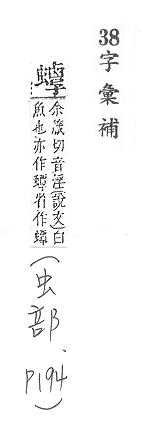 38字彙補
余箴切音淫(說文)白
魚也亦作蟫省作蟫
(虫部、
P194)